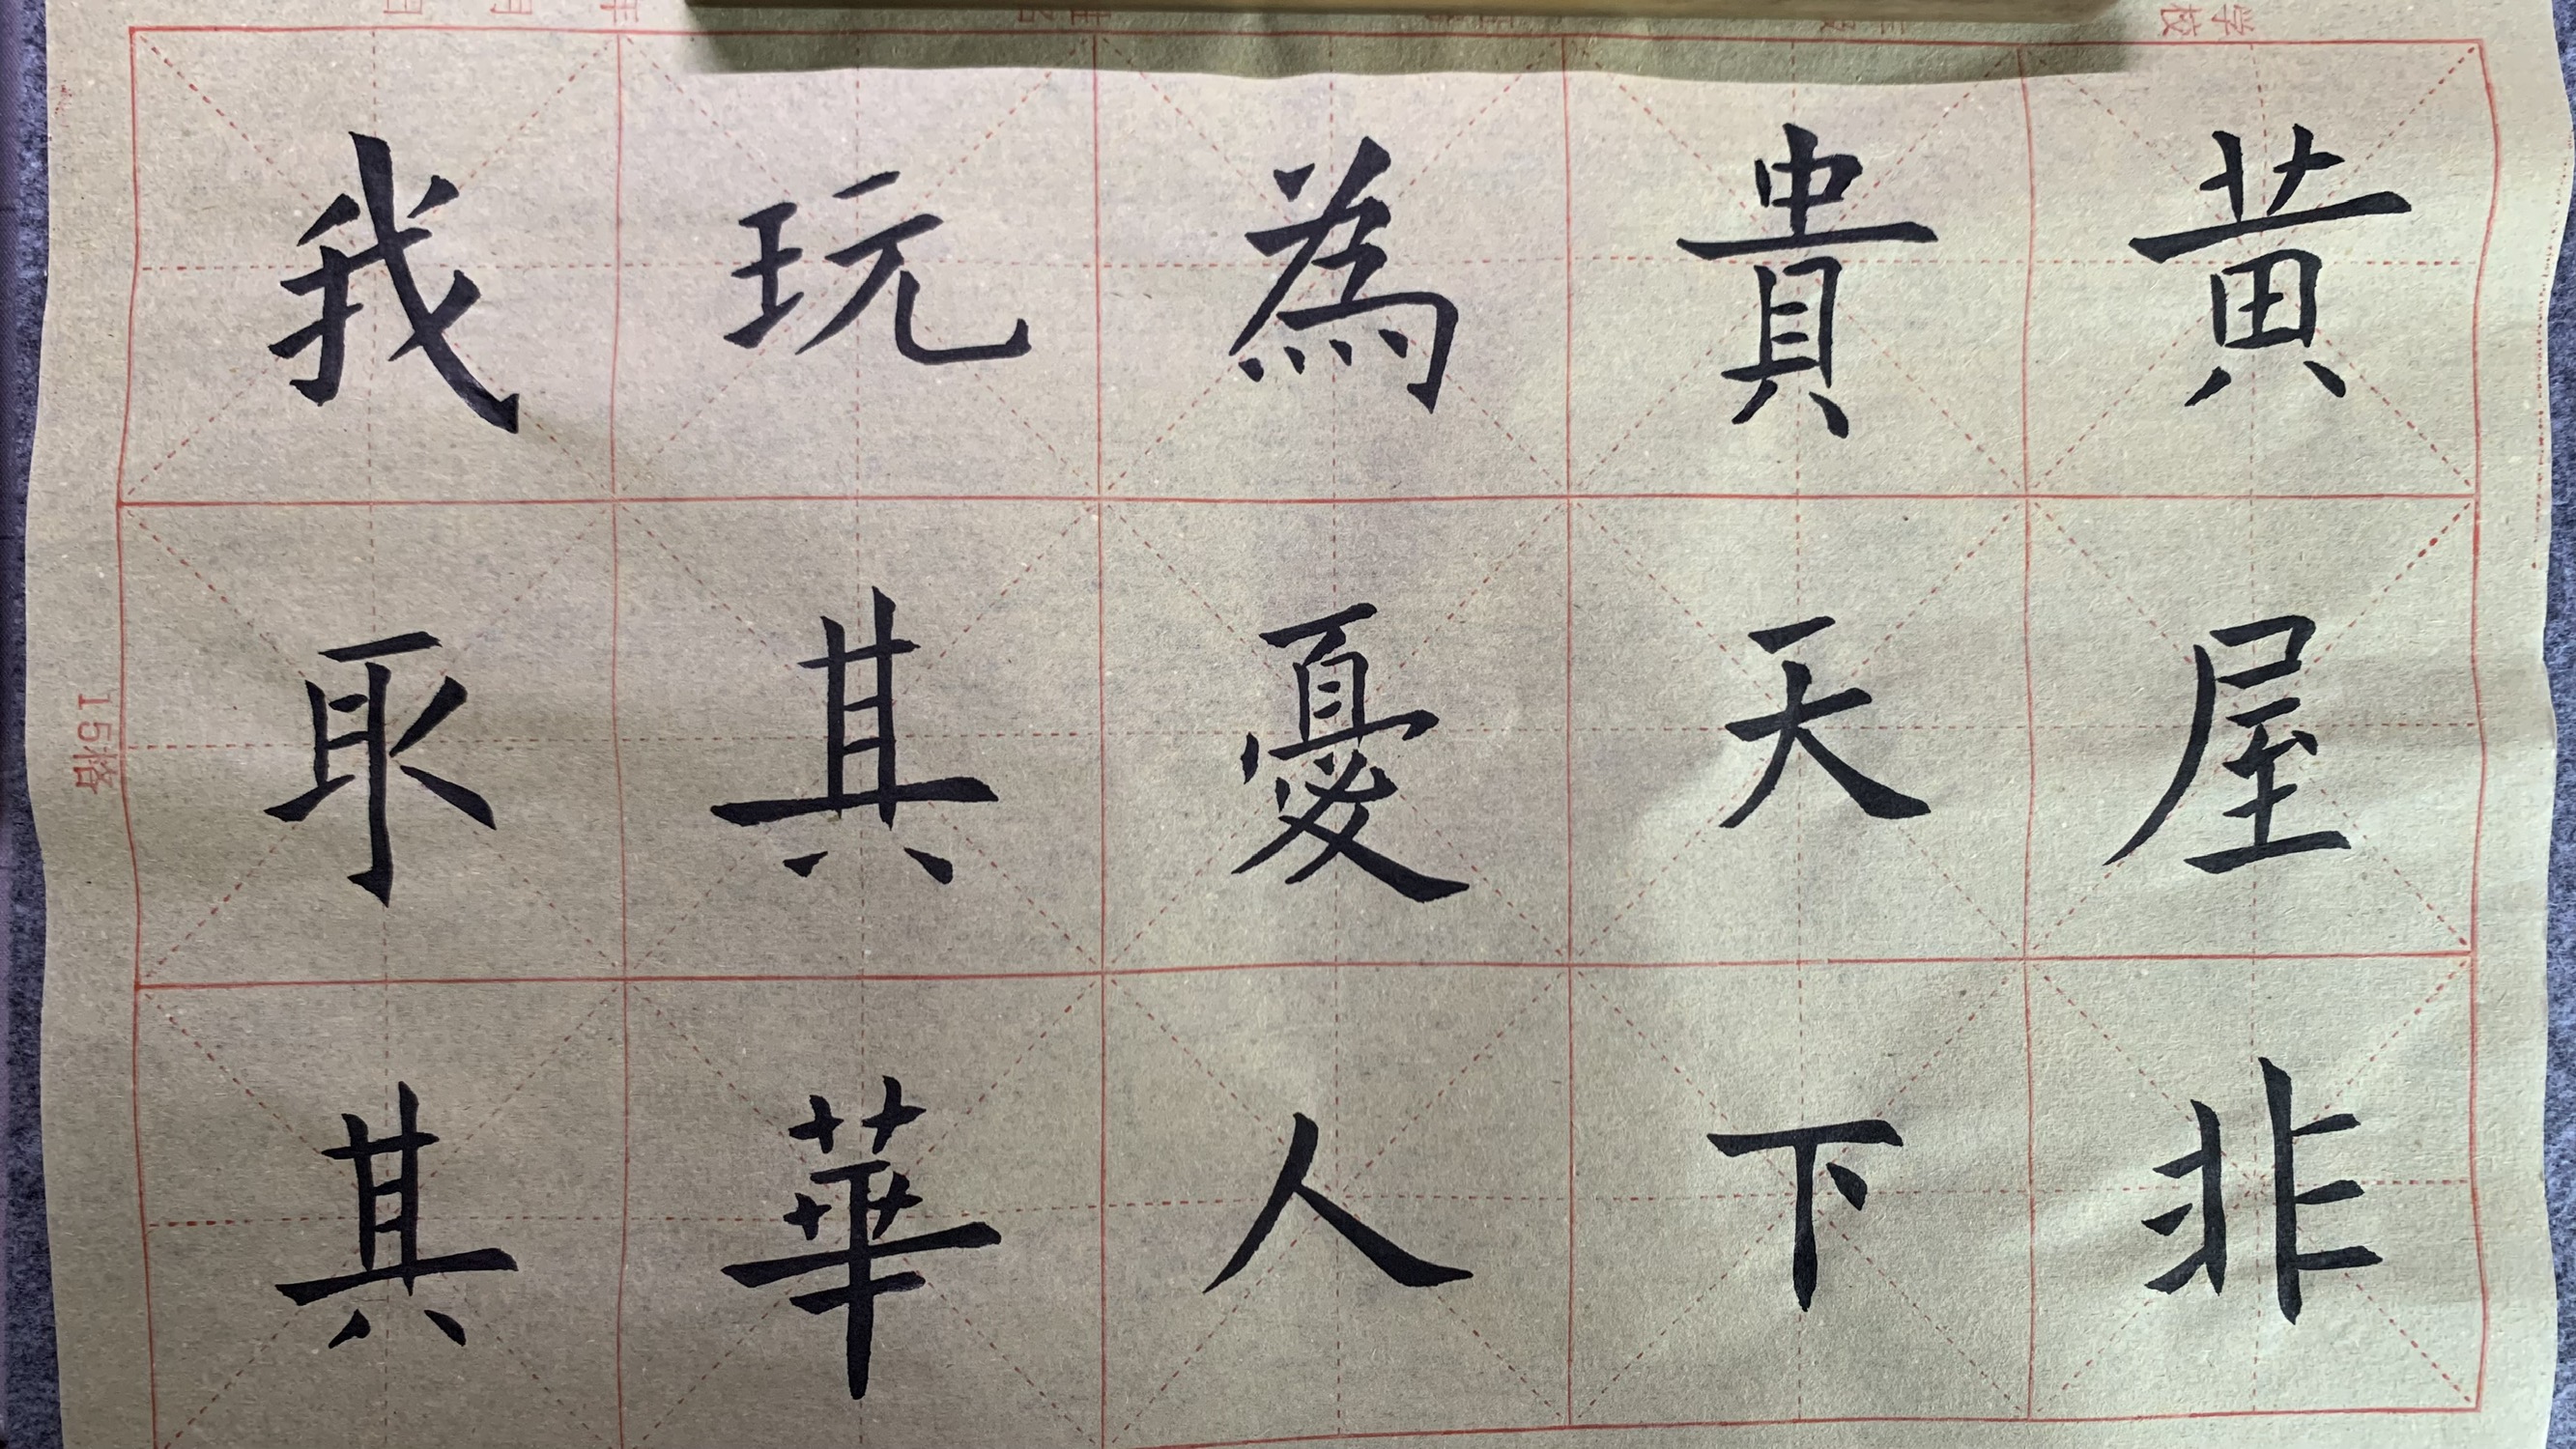 黄屋非
貴天下
為憂人
玩其華
我取其
学校
15格